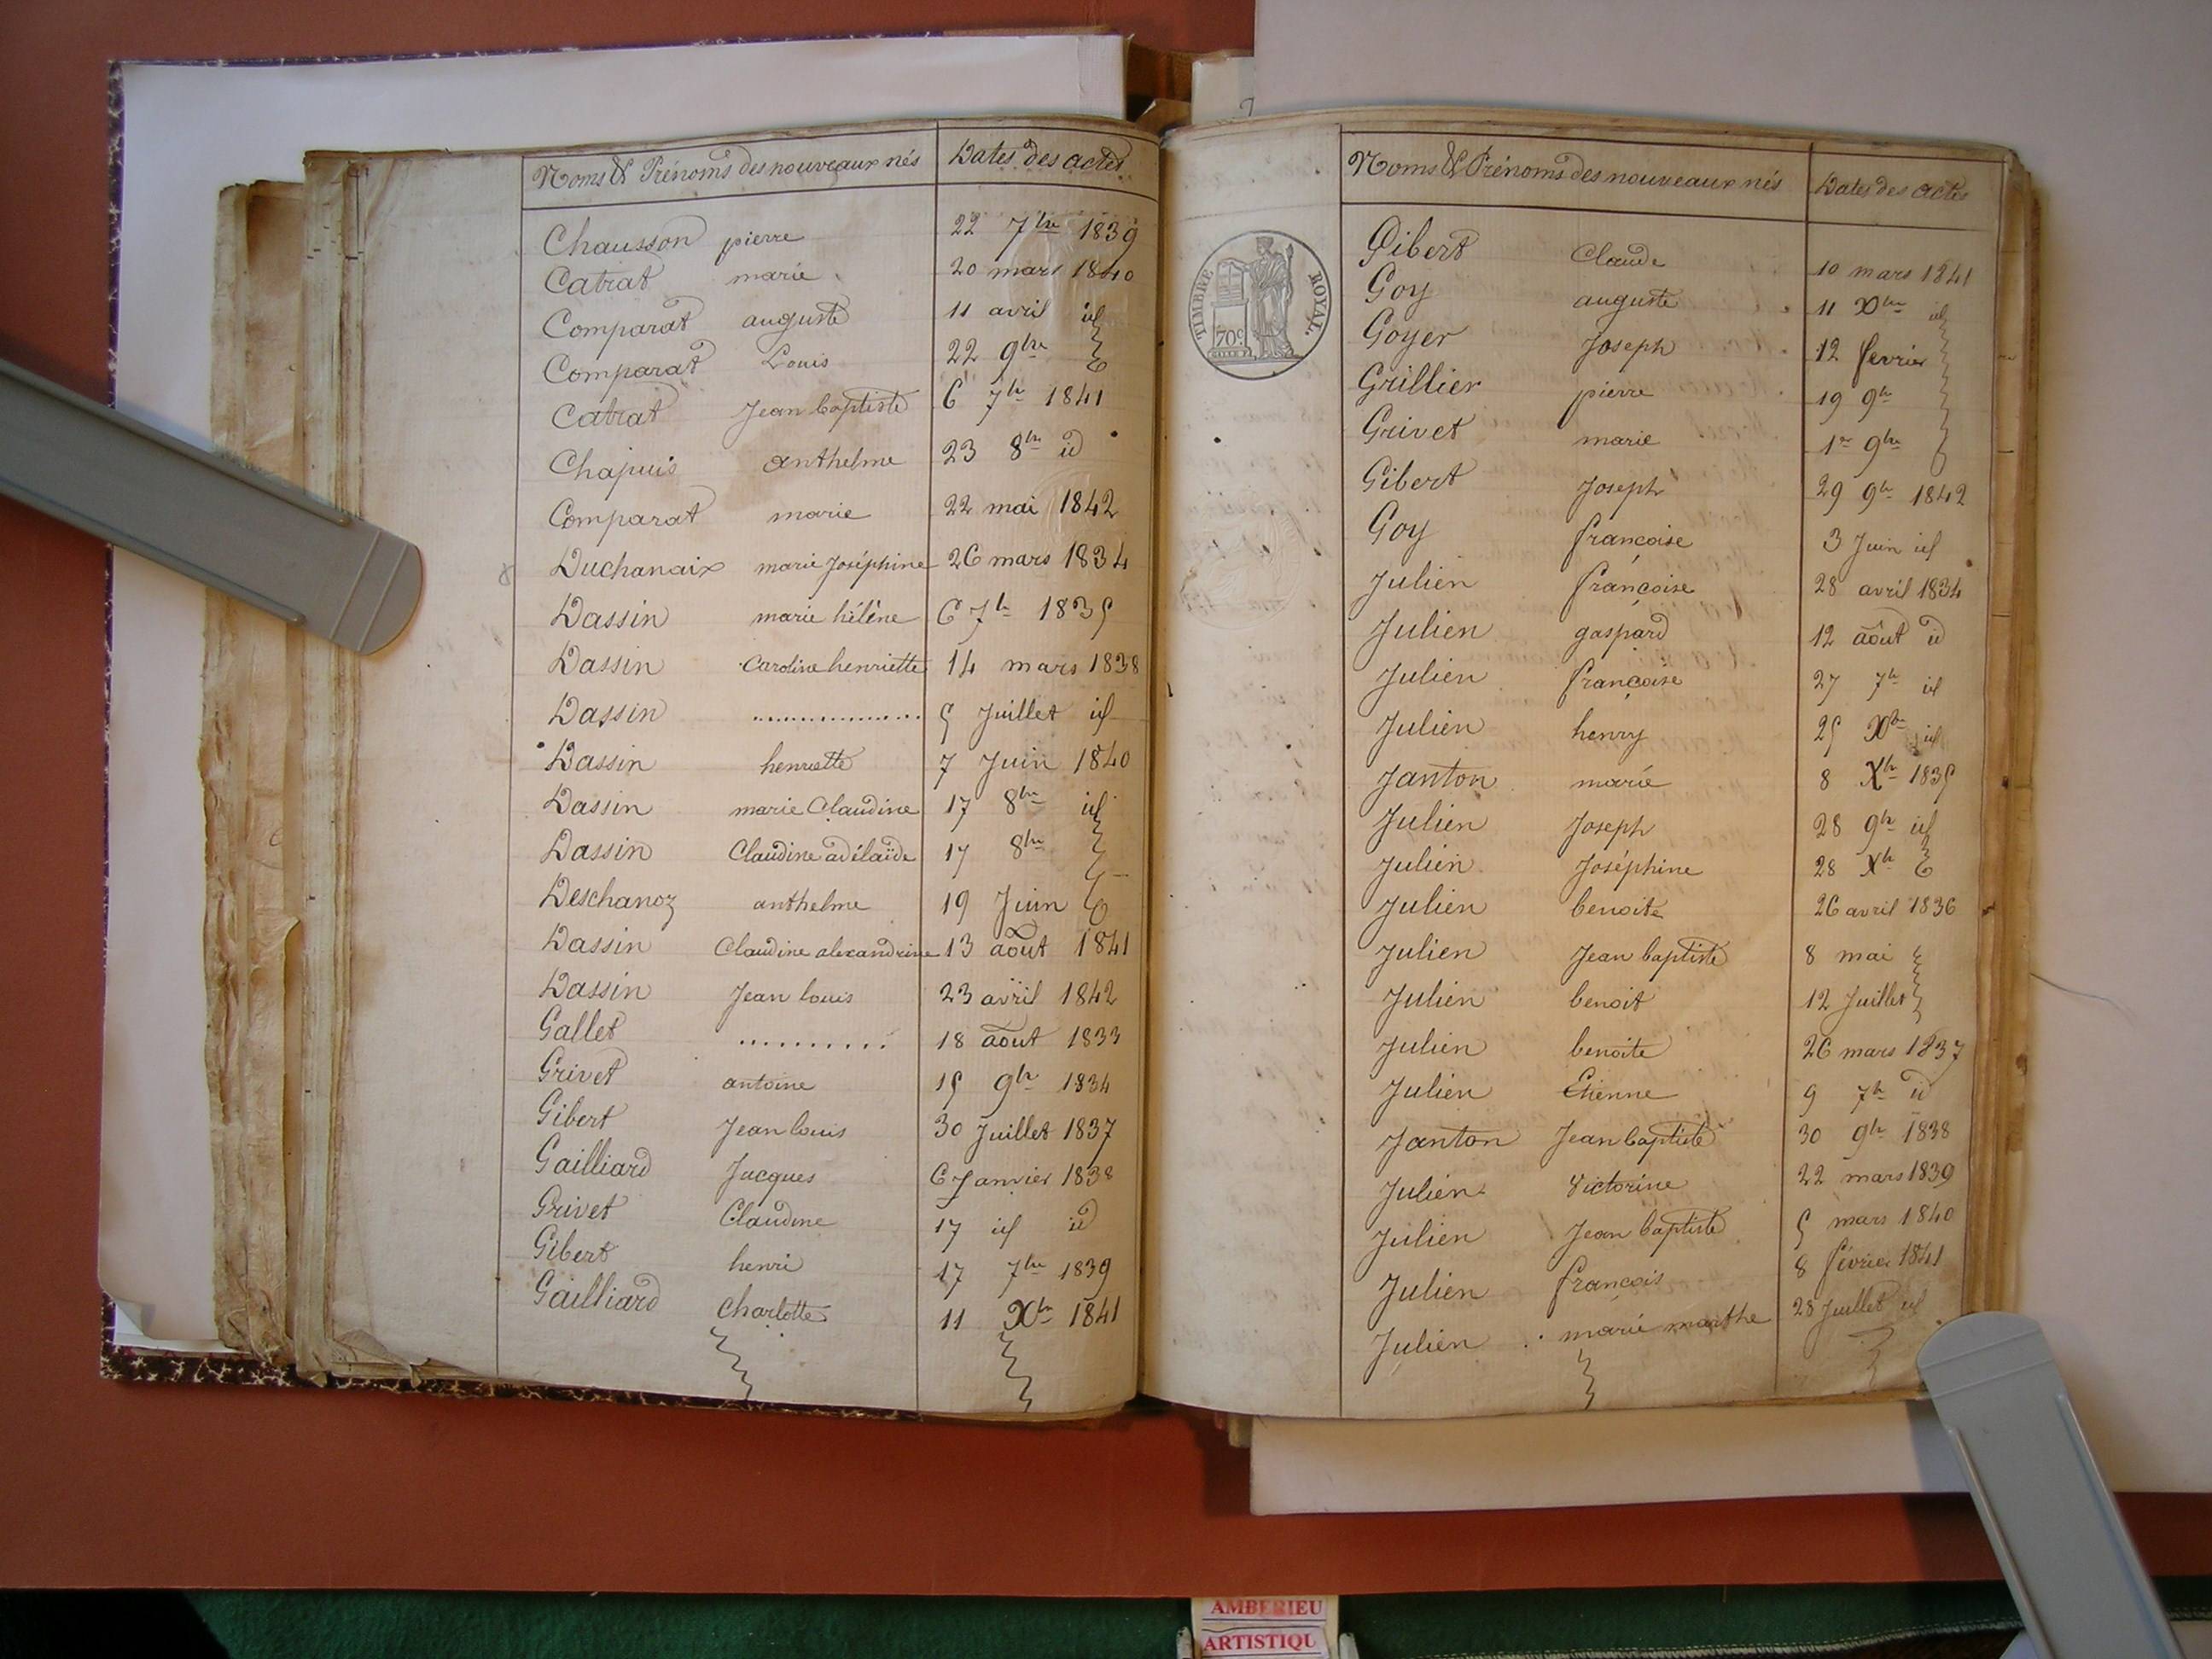 Noms & Prénoms des nouveaux nés Dates des actes
Chausson pierre 22 7bre 1839
Catrat marie 20 mars 1840
Comparat auguste 11 avril id
Comparat Louis 22 9bre
Catrat Jean baptiste 6 7bre 1841
Chapuis anthelme 23 8bre id
Comparat marie 22 mai 1842
Duchanaix marie Joséphine 26 mars 1834
Dassin marie hélène 6 7bre 1835
Dassin Caroline henriette 14 mars 1838
Dassin ................ 5 Juillet id
Dassin henriette 7 Juin 1840
Dassin marie Claudine 17 8bre id
Dassin Claudine adélaïde 17 8bre
Deschanoz anthelme 19 Juin
Dassin Claudine alexandrine 13 août 1841
Dassin Jean louis 23 avril 1842
Gallet .......... 18 août 1833
Grivet antoine 15 9bre 1834
Gibert Jean louis 30 Juillet 1837
Gailliard Jacques 6 Janvier 1838
Grivet Claudine 17 id id
Gibert henri 17 7bre 1839
Gailliard Charlotte 11 Xbre 1841
TIMBRE ROYAL.
70c
Noms & Prénoms des nouveaux nés Dates des actes
Gibert Claude 10 mars 1841
Goy auguste 11 Xbre id
Goyer Joseph 12 fevrier
Grillier pierre 19 9bre
Grivet marie 1er 9bre
Gibert Joseph 29 9bre 1842
Goy françoise 3 Juin id
Julien françoise 28 avril 1834
Julien gaspard 12 août id
Julien françoise 27 7bre id
Julien henry 25 Xbre id
Janton marie 8 Xbre 1835
Julien Joseph 28 9bre id
Julien Joséphine 28 Xbre
Julien benoite 26 avril 1836
Julien Jean baptiste 8 mai
Julien benoit 12 Juillet
Julien benoite 26 mars 1837
Julien Etienne 9 7bre id
Janton Jean baptiste 30 9bre 1838
Julien Victorine 22 mars 1839
Julien Jean baptiste 5 mars 1840
Julien françois 8 février 1841
Julien marie marthe 28 Juillet id
AMBERIEU
ARTISTIQU